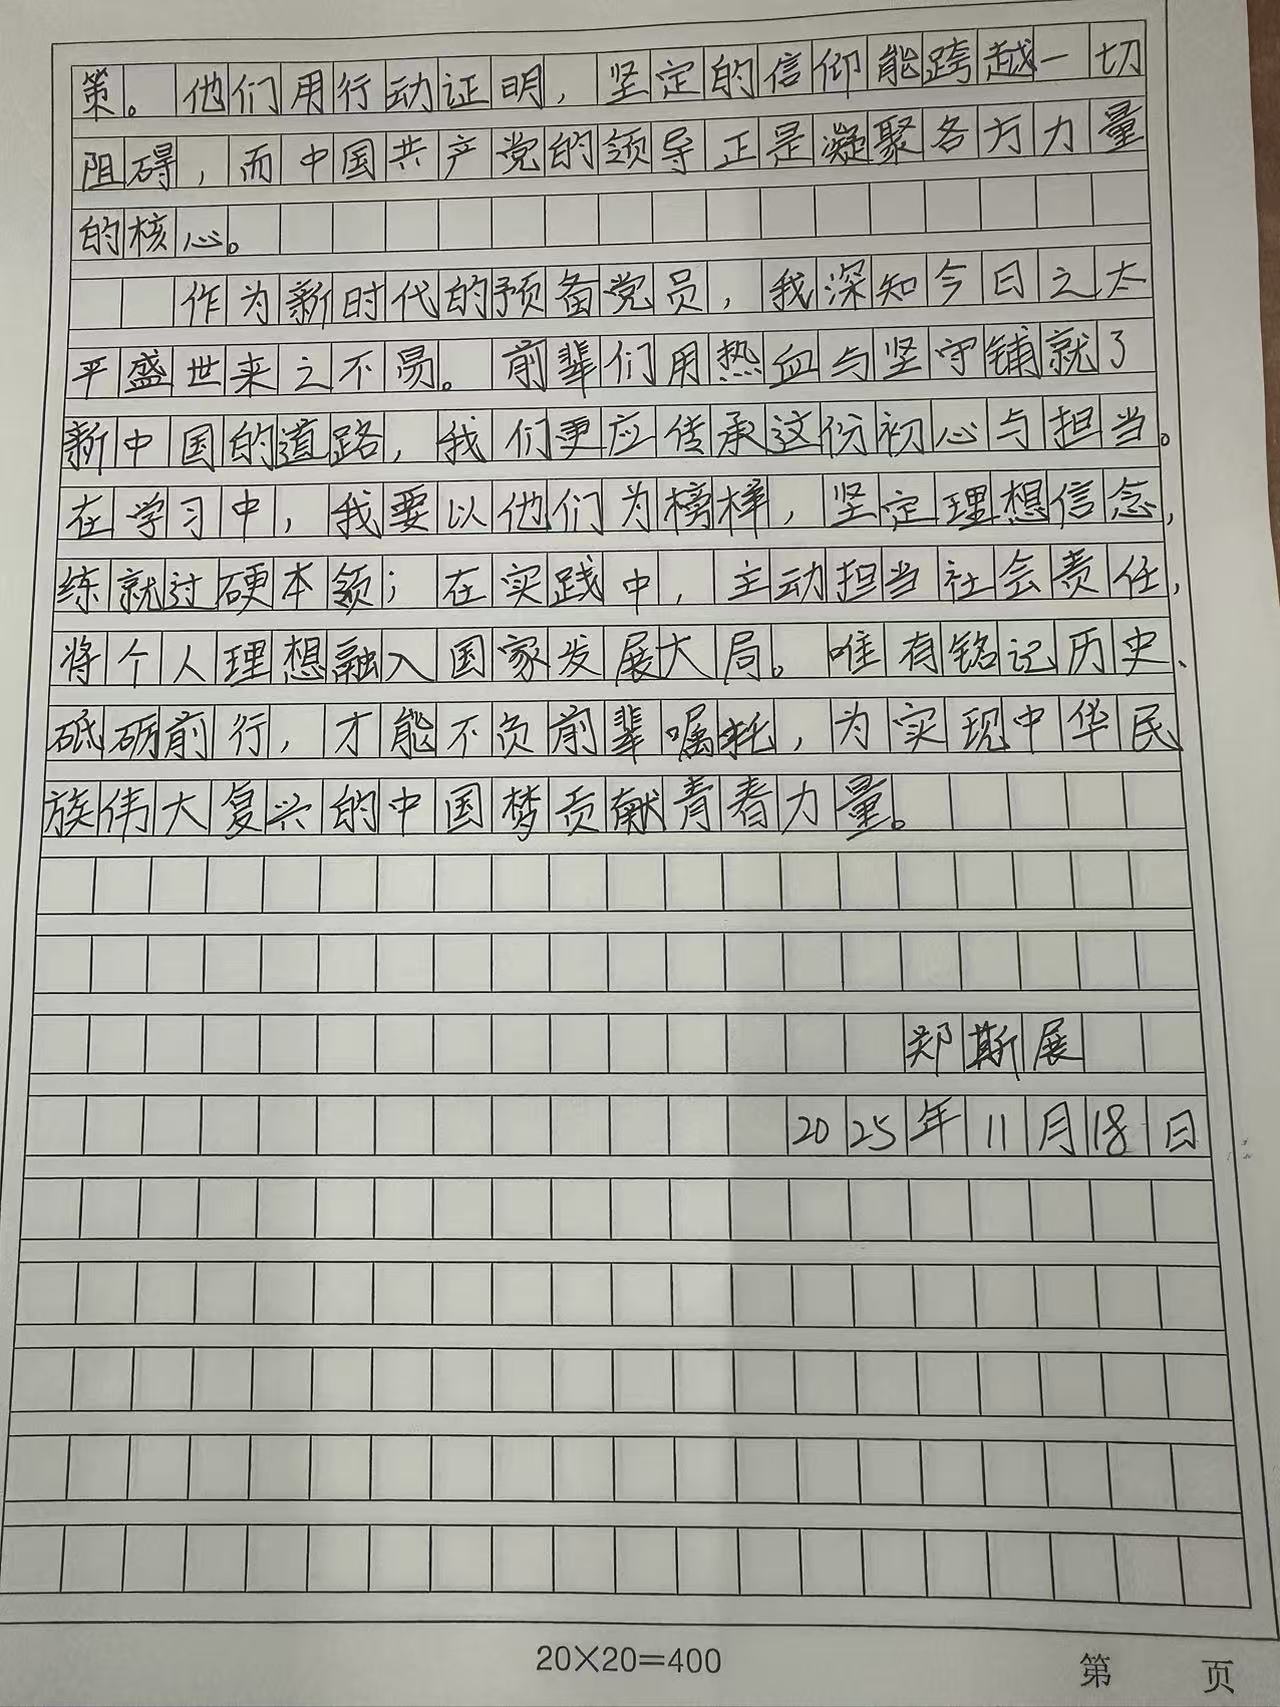 策。他们用行动证明，坚定的信仰能跨越一切
阻碍，而中国共产党的领导正是凝聚各方力量
的核心。
作为新时代的预备党员，我深知今日之太
平盛世来之不易。前辈们用热血与坚守铺就了
新中国的道路，我们更应传承这份初心与担当。
在学习中，我要以他们为榜样，坚定理想信念，
练就过硬本领；在实践中，主动担当社会责任，
将个人理想融入国家发展大局。唯有铭记历史、
砥砺前行，才能不负前辈嘱托，为实现中华民
族伟大复兴的中国梦贡献青春力量。
郑斯展
2025年11月18日
20×20=400
第 页